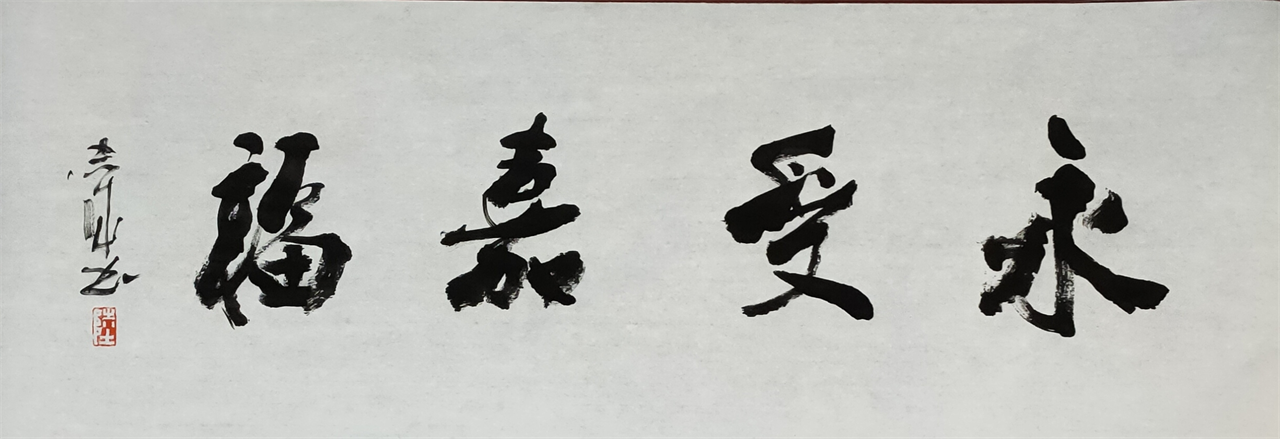 永受嘉福